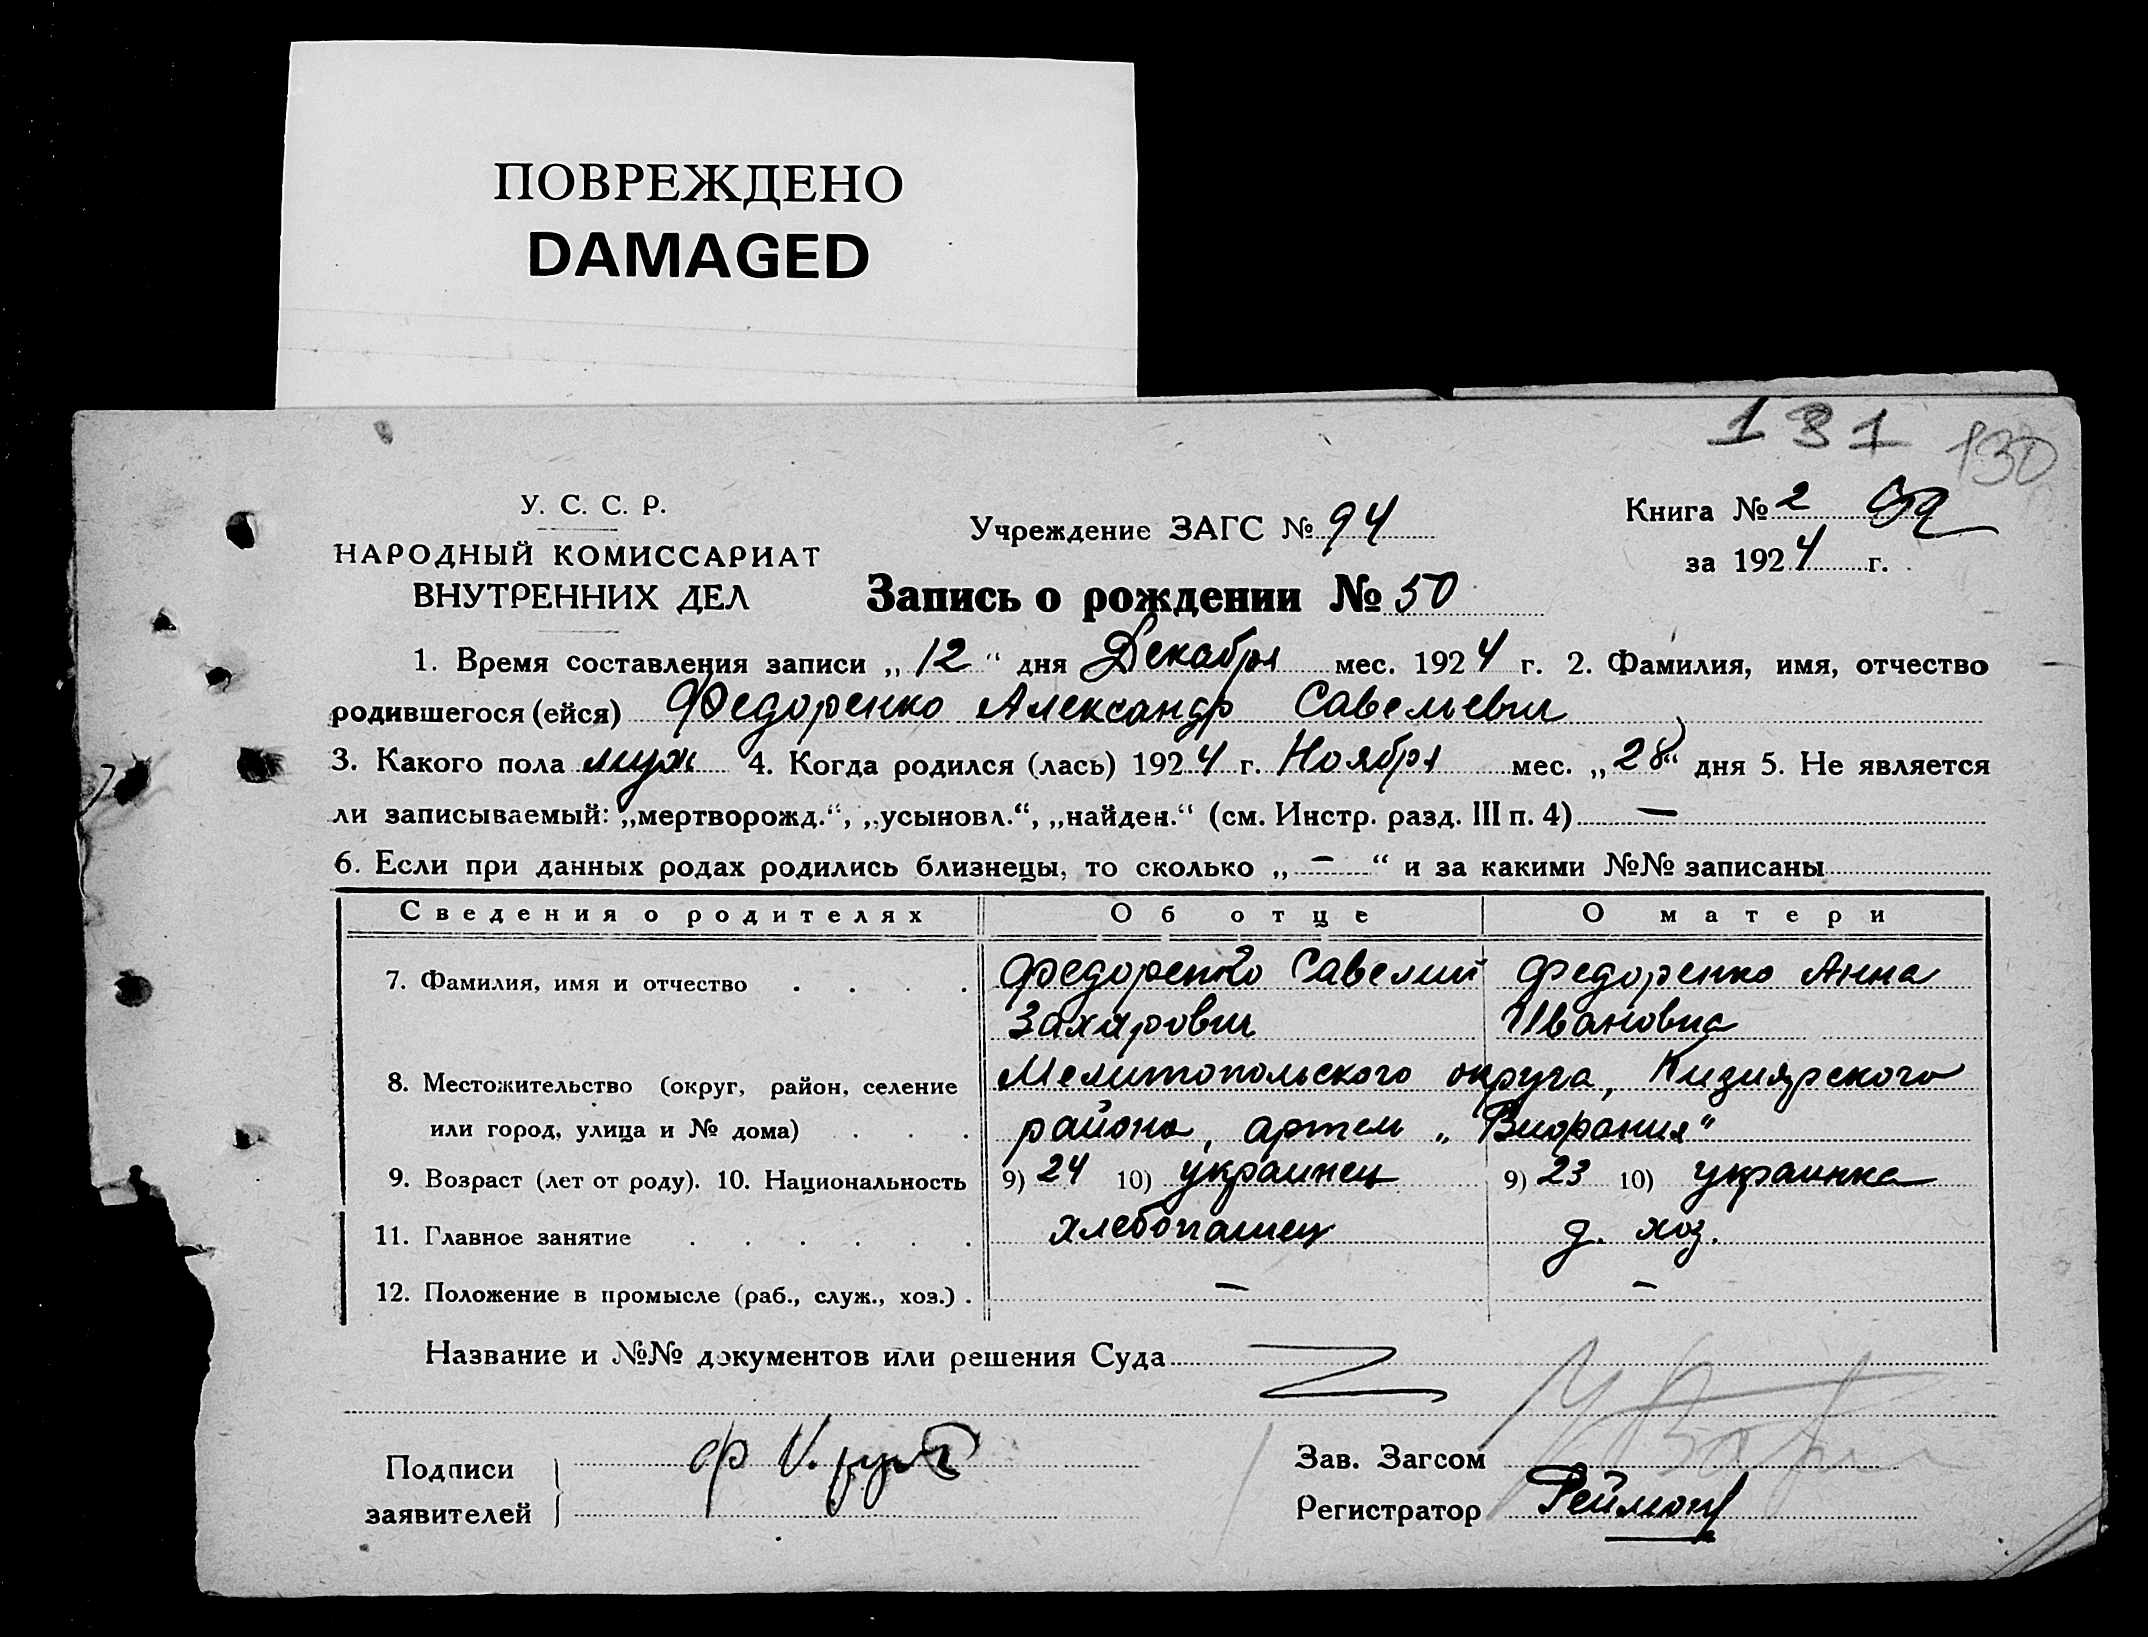 ПОВРЕЖДЕНО
DAMAGED
131 130
У. С. С. Р.
НАРОДНЫЙ КОМИССАРИАТ
ВНУТРЕННИХ ДЕЛ
Учреждение ЗАГС № 94
Книга № 2
за 1924 г.
Запись о рождении № 50
1. Время составления записи „12“ дня Декабря мес. 1924 г. 2. Фамилия, имя, отчество
родившегося (ейся) Федоренко Александр Савельевич
3. Какого пола муж 4. Когда родился (лась) 1924 г. Ноября мес. „28“ дня 5. Не является
ли записываемый: „мертворожд.“, „усыновл.“, „найден.“ (см. Инстр. разд. III п. 4) —
6. Если при данных родах родились близнецы, то сколько „—“ и за какими №№ записаны
Сведения о родителях Об отце О матери
7. Фамилия, имя и отчество Федоренко Савелий Федоренко Анна
Захарович Ивановна
8. Местожительство (округ, район, селение Мелитопольского округа, Кизиярского
или город, улица и № дома) района, артель
9. Возраст (лет от роду). 10. Национальность 9) 24 10) украинец 9) 23 10) украинка
11. Главное занятие хлебопашец д. хоз.
12. Положение в промысле (раб., служ., хоз.) — —
Название и №№ документов или решения Суда
Подписи
заявителей
Зав. Загсом
Регистратор